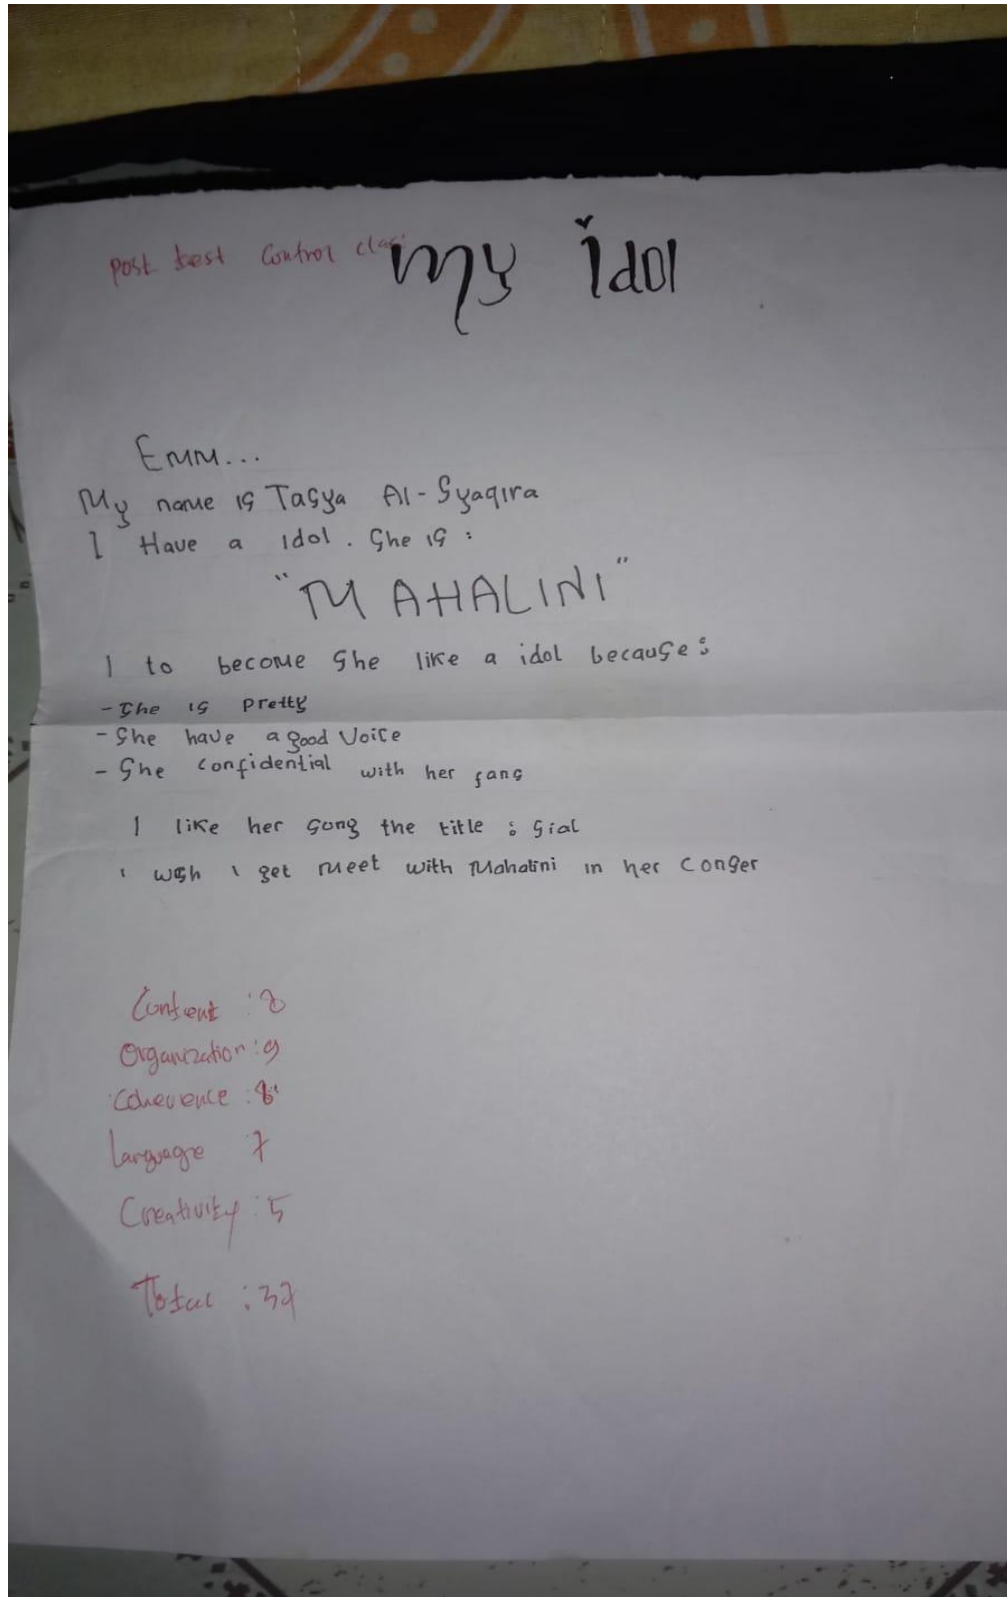 Post test Control clas
my idol
Emm...
My name is Tasya Al-Syaqira
I Have a idol. She is :
"MAHALINI"
I to become she like a idol because :
- She is pretty
- She have a good Voice
- She confidential with her fans
I like her song the title : Sial
I wsh I get meet with Mahalini in her Conser
Content : 8
Organization : 9
Coherence : 8
Language 7
Creativity : 5
Total : 37